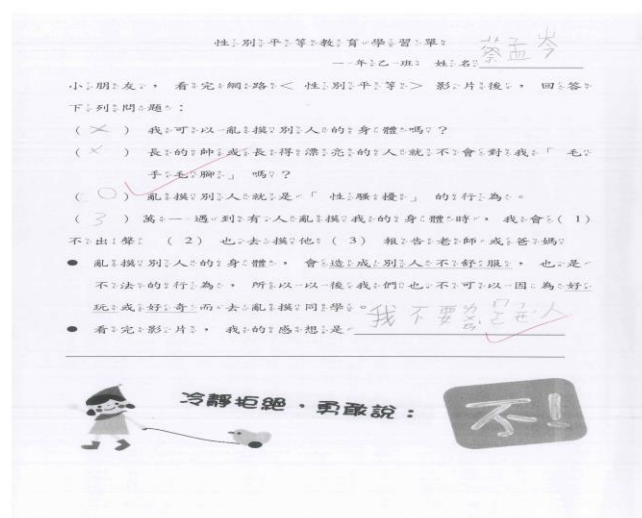 性別平等教育學習單
一年乙班 姓名 蔡孟岑
小朋友，看完網路<性別平等>影片後，回答
下列問題：
(╳) 我可以亂摸別人的身體嗎？
(╳) 長的帥或長得漂亮的人就不會對我「毛
手毛腳」嗎？
(○) 亂摸別人就是「性騷擾」的行為。
(3) 萬一遇到有人亂摸我的身體時，我會(1)
不出聲 (2) 也去摸他 (3) 報告老師或爸媽
● 亂摸別人的身體，會造成別人不舒服，也是
不法的行為，所以以後我們也不可以因為好
玩或好奇而去亂摸同學。
● 看完影片，我的感想是 我不要ㄌㄨㄢˋㄇㄛ人
冷靜拒絕，勇敢說：
不!